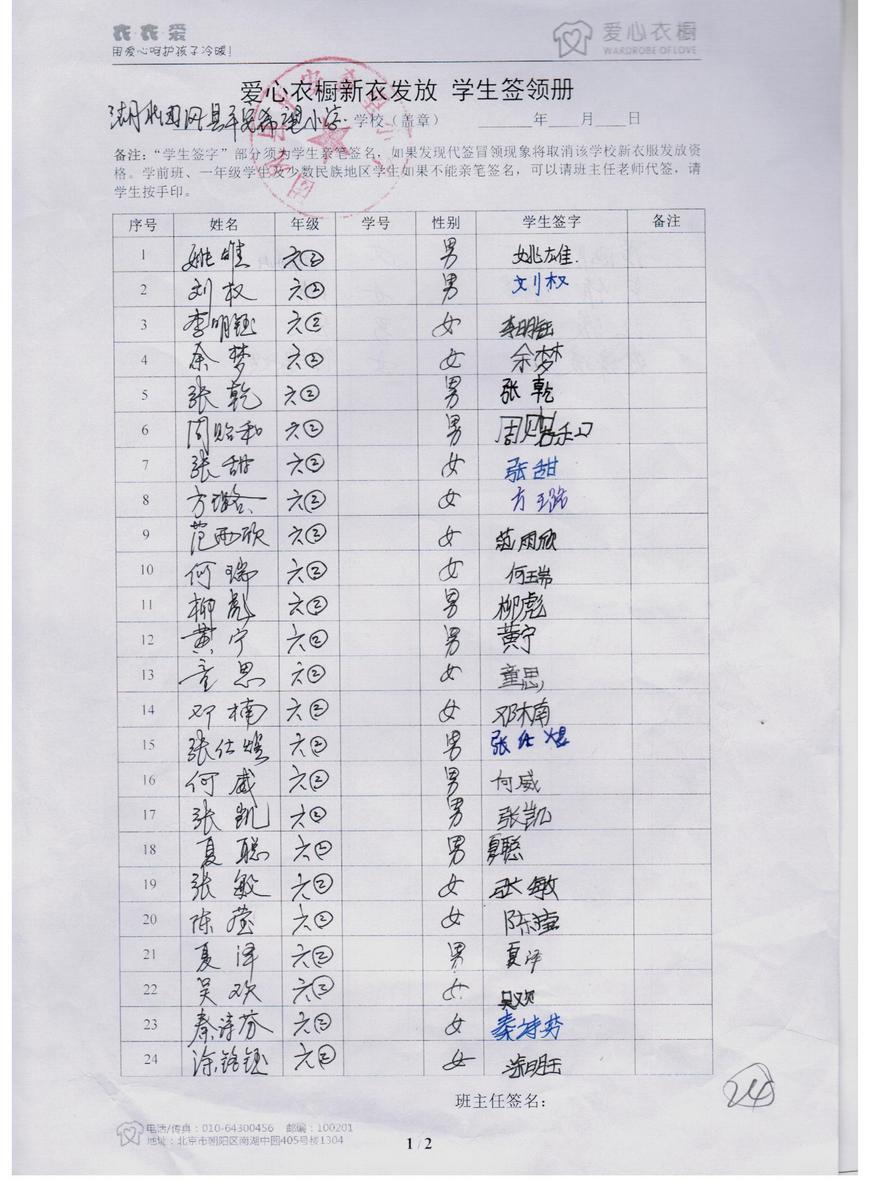 衣·衣·爱
用爱心呵护孩子冷暖!
爱心衣橱
WARDROBE OF LOVE
爱心衣橱新衣发放 学生签领册
学校（盖章） ______年____月____日
备注：“学生签字”部分须为学生亲笔签名，如果发现代签冒领现象将取消该学校新衣服发放资
格。学前班、一年级学生及少数民族地区学生如果不能亲笔签名，可以请班主任老师代签，请
学生按手印。
序号 姓名 年级 学号 性别 学生签字 备注
1 姚雄 六② 男 姚雄.
2 刘权 六② 男 刘权
3 李明钰 六② 女 李明钰
4 余梦 六② 女 余梦
5 张乾 六② 男 张乾
6 周贻和 六② 男 周贻和
7 张甜 六② 女 张甜
8 方璐 六② 女 方璐
9 范雨欣 六② 女 范雨欣
10 何瑞 六② 女 何瑞
11 柳彪 六② 男 柳彪
12 黄宁 六② 男 黄宁
13 童思 六② 女 童思
14 邓楠 六② 女 邓楠
15 张仕煜 六② 男 张仕煜
16 何威 六② 男 何威
17 张凯 六② 男 张凯
18 夏聪 六② 男 夏聪
19 张敏 六② 女 张敏
20 陈莹 六② 女 陈滢
21 夏泽 六② 男 夏泽
22 吴欢 六② 女 吴欢
23 秦诗芬 六② 女 秦诗芬
24 六② 女
班主任签名：
24
电话/传真：010-64300456 邮编：100201
地址：北京市朝阳区南湖中园405号楼1304
1 / 2